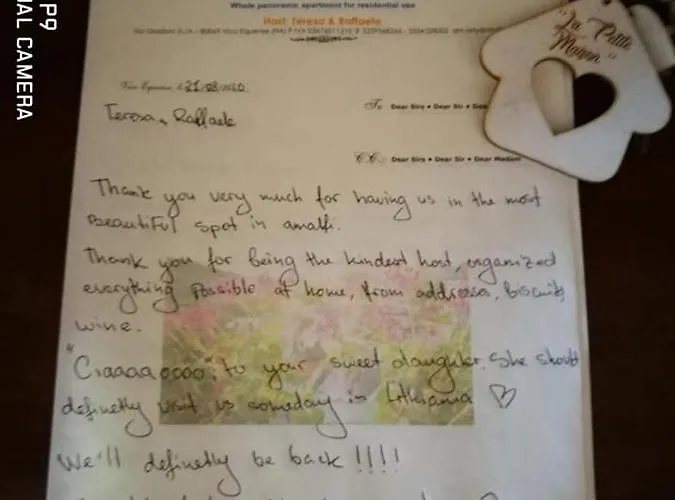 Whole panoramic apartment for residential use
Host: Teresa & Raffaele
Vico Equense, li 21/08/2020
Teresa & Raffaele
To Dear Sirs • Dear Sir •
C.C.: Dear Sirs • Dear Sir • Dear Madam
"La Petite
Maison"
Thank you very much for having us in the most
Beautiful spot in amalfi.
Thank you for being the kindest host, organized
everything possible at home, from addresses, biscuits,
wine.
"Ciaaaaoooo" to your sweet daughter. She should
definetly visit us someday in Lithuania ♡
We'll definetly be back !!!!
P9
AL CAMERA